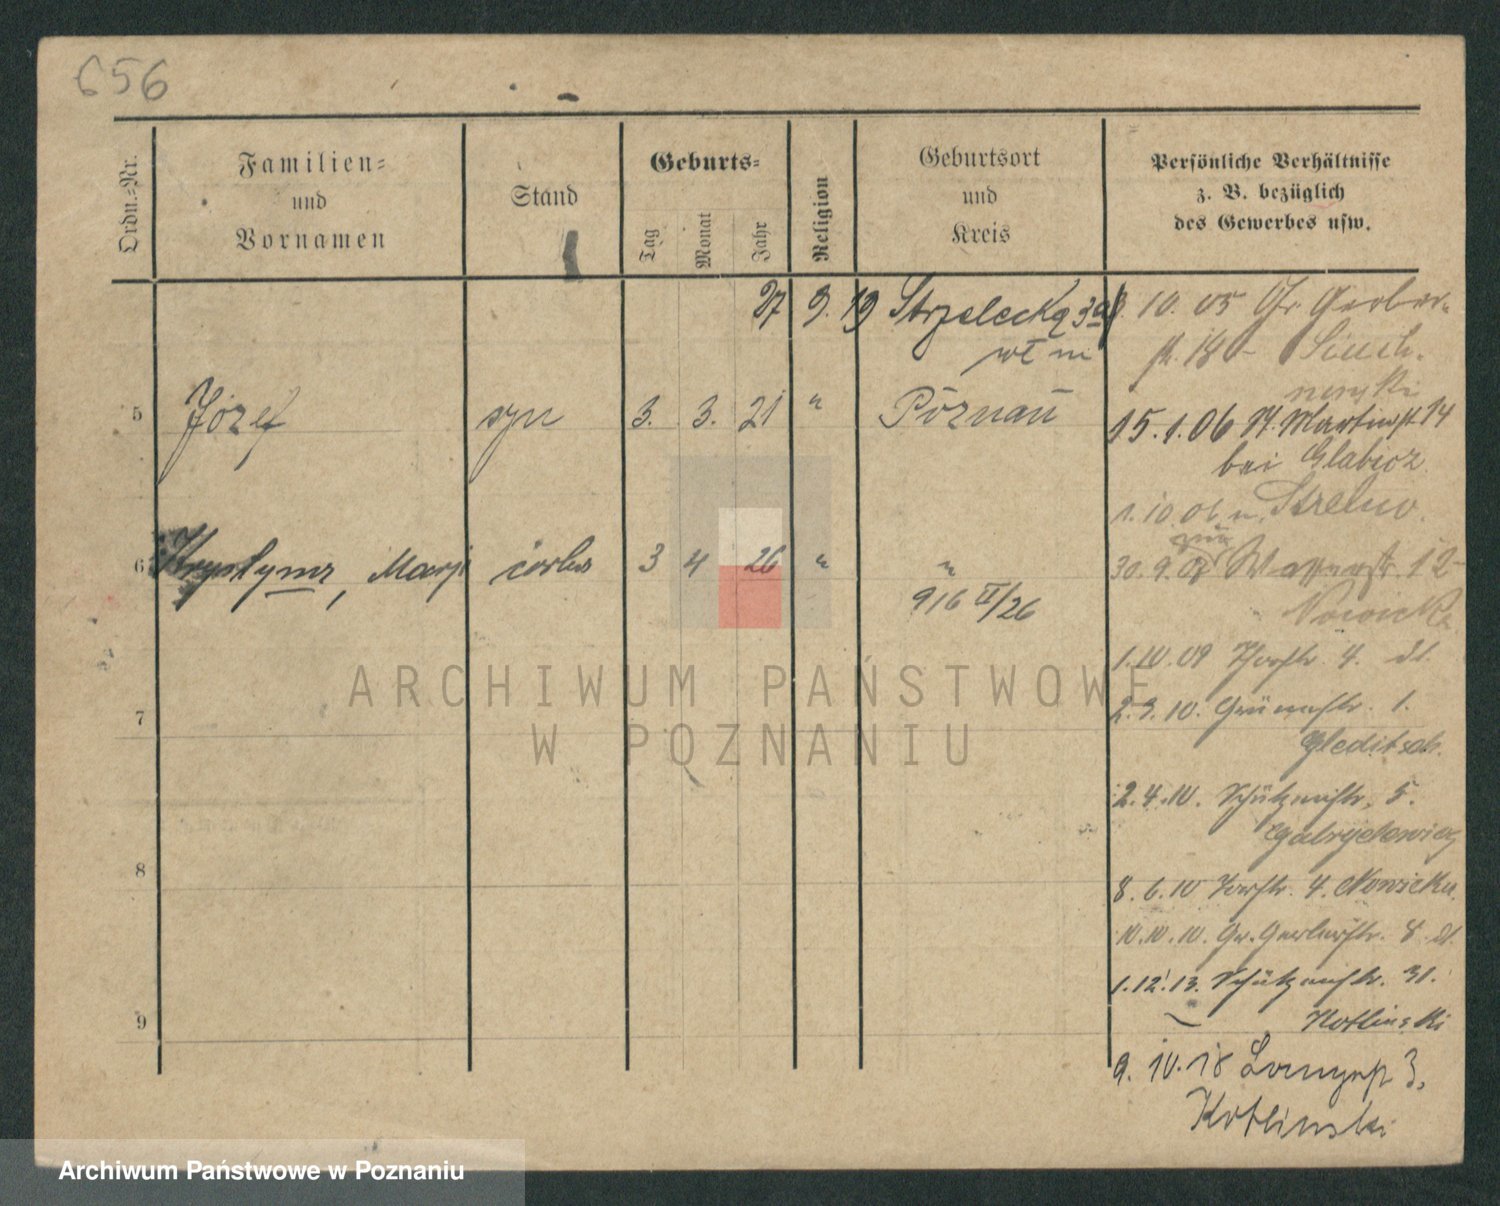 656
Ordn.-Nr.
Familien-
und
Vornamen
Stand
Geburts-
Tag
Monat
Jahr
Religion
Geburtsort
und
Kreis
Persönliche Verhältnisse
z. B. bezüglich
des Gewerbes usw.
27 9. 19 Strzelecka 3a
10. 05 Gr. Gerber-
18
5 Józef syn 3. 3. 21 " Poznań
15. 1. 06 Martinstr 14
bei Glabisz
1. 10. 06 n. Strelno
6 Krystyna, Marja córka 3 4 26 " "
916 II/26
30. 9. 12
Nowicki
1. 10. 09 4.
7
2. 3. 10. Grünestr. 1.
Gleditsch.
2. 4. 10. Schützenstr. 5.
Gabryelewicz
8
8. 6. 10 4. Nowicki
10. 10. 10. Gr. Gerberstr. 8
1. 12. 13. Schützenstr. 31.
9
Kotlinski
9. 10. 18 3.
Kotlinski
ARCHIWUM PAŃSTWOWE
W POZNANIU
Archiwum Państwowe w Poznaniu